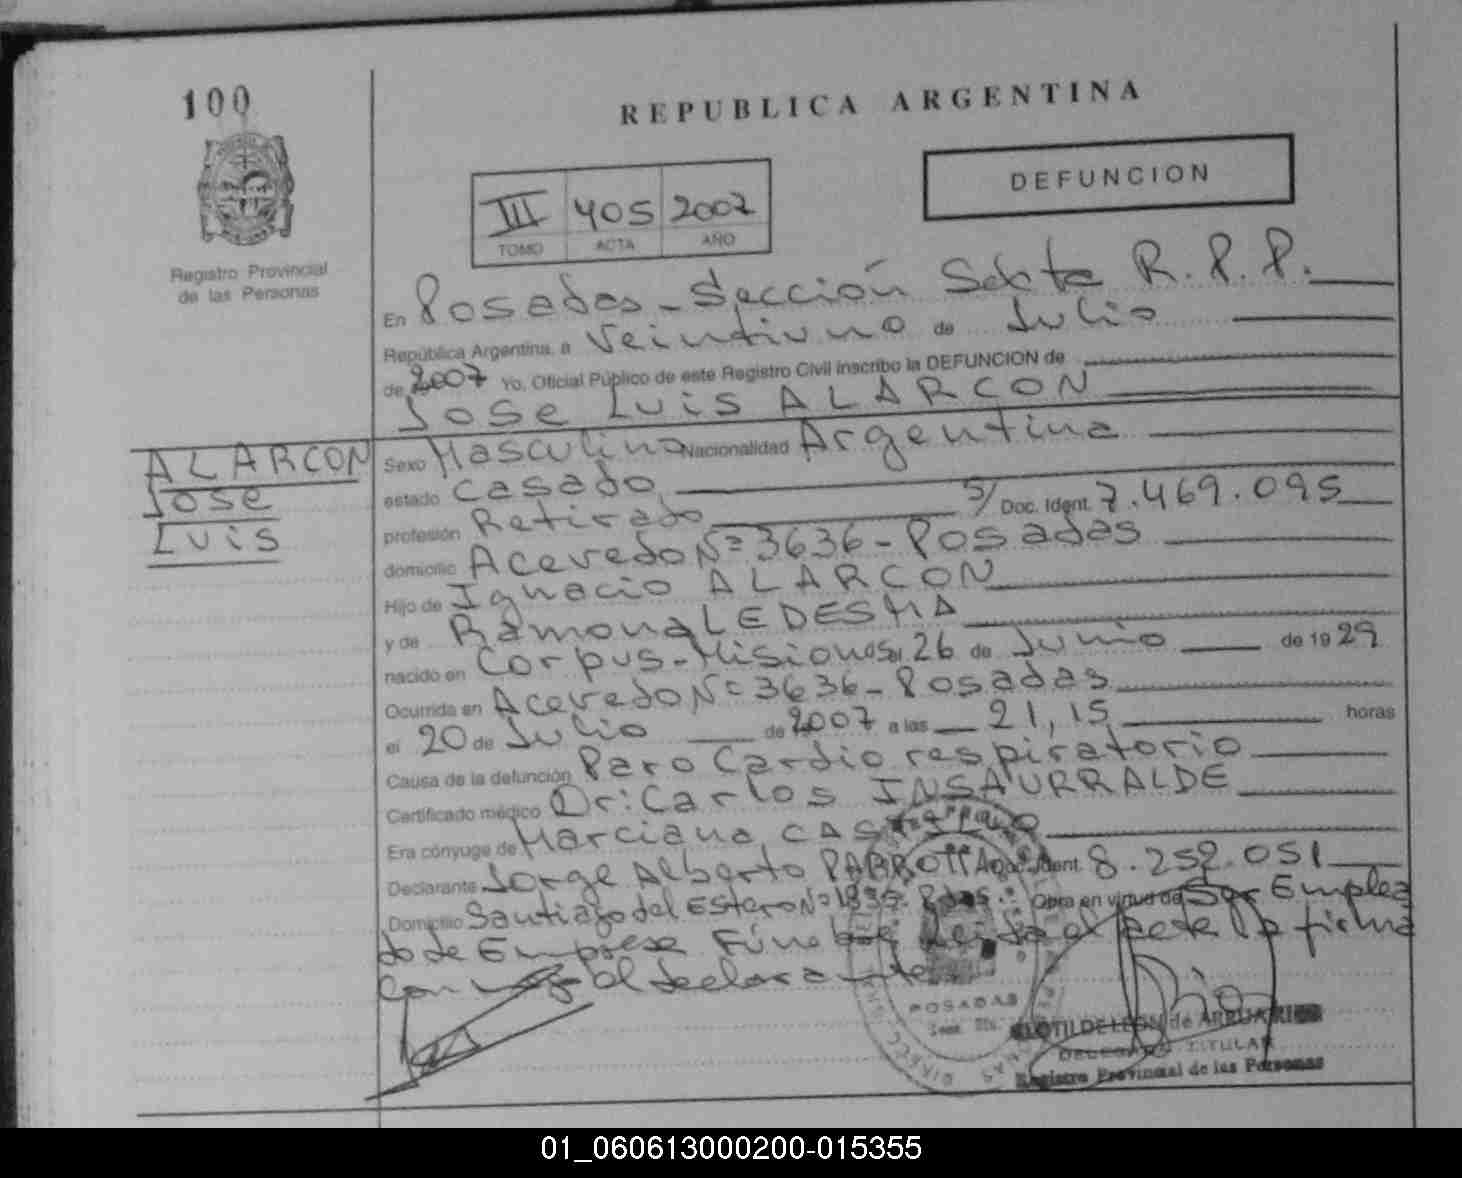 100
REPUBLICA ARGENTINA
DEFUNCION
III 405 2007
TOMO ACTA AÑO
Registro Provincial
de las Personas
En Posadas - Sección Sexta R.P.P.
República Argentina, a Veintiuno de Julio
de 2007 Yo, Oficial Público de este Registro Civil inscribo la DEFUNCION de
JOSE LUIS ALARCON
ALARCON
JOSE
LUIS
Sexo Masculino Nacionalidad Argentina
estado casado
profesión Retirado S/ Doc. Ident. 7.469.095
domicilio Acevedo Nº 3636 - Posadas
Hijo de Ignacio ALARCON
y de Ramona LEDESMA
nacido en Corpus - Misiones el 26 de Junio de 1929
Ocurrida en Acevedo Nº 3636 - Posadas
el 20 de Julio de 2007 a las 21,15 horas
Causa de la defunción Paro Cardio respiratorio
Certificado médico Dr: Carlos INSAURRALDE
Era cónyuge de Marciana
Declarante Jorge Alberto PARROTTA Doc. Ident. 8.252.051
Domicilio Santiago del Estero Nº 1835 - Pdas. Obra en virtud de Ser Emplea
do de Empresa Fúnebre el acta la firma
conmigo el declarante
POSADAS
CLOTILDE LEON de
DELEGADA TITULAR
Registro Provincial de las Personas
01_060613000200-015355